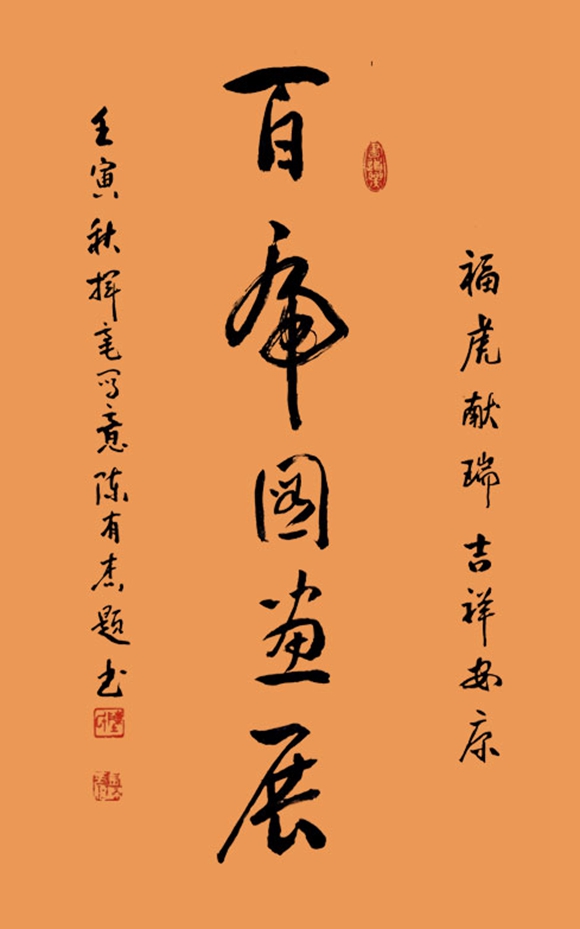 福虎献瑞吉祥安康
百虎图画展
壬寅秋挥毫写意陈有杰题书